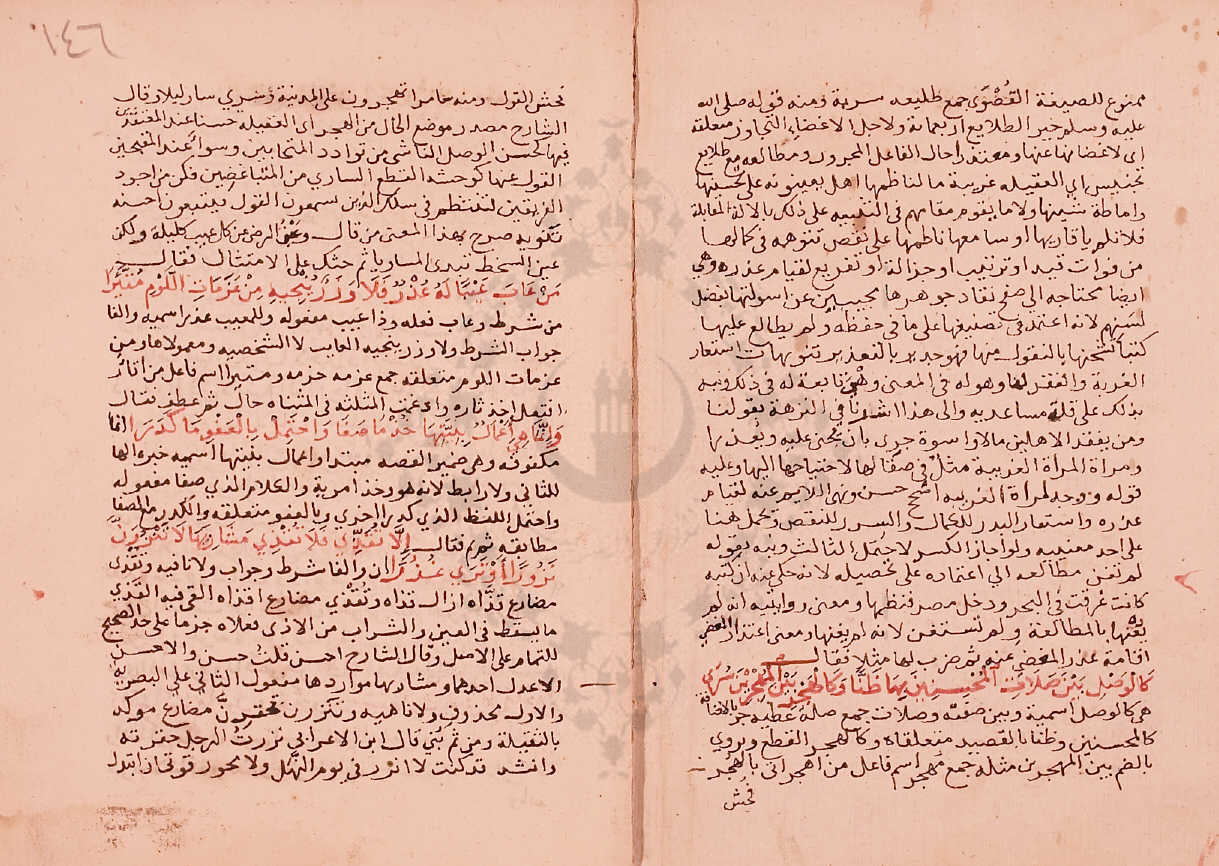 ممنوع للصيغة القصوى جمع طليعه سرية ومنه قوله صلى الله
عليه وسلم خير الطلايع اربعمائة ولاجل الاغضاء التجاوز متعلقه
اى لاغضائها عنها ومعتذرا حال الفاعل المجرور ومطالعه مع طلايع
تجنيس اي العقيله غريبة ما لناظمها اهل يعينونه على تحسينها
واماطة شينها ولا ما يقوم مقامهم فى التنبيه على ذلك بالالة المقابلة
فلا تلم يا قاريها او سامعها ناظمها على نقص تتوهمه فى كمالها
من فوات قيد او ترتيب او جزالة او تفريع لقيام عذره وهي
ايضا محتاجه الى صفح نقاد جوهرها مجيبين عن اسولتها بفضل
لسنهم لانه اعتمد فى تصنيفها على ما في حفظه ولم يطالع عليها
كتبا لشحنها بالنقول منها فهو جدير بالتعذير تنويهات استعار
الغربة والفقر لها وهو له فى المعنى وهي تابعة له فى ذلك ونبه
بذلك على قلة مساعديه والى هذا اشرنا فى النزهة بقولنا
ومن يفقد الاهلين مالا واسوة حرى بان يحنى عليه ويعذرا
ومراة المرأة الغريبة مثل فى صقالها لاحتياجها اليها وعليه
قوله ووجد لمراة الغريبه اسجح حسن ونهى اللايم عنه لقيام
عذره واستعار البدر للكمال والسرر للنقص وتحمل هنا
على احد معنييه ولو اجاز الكسر لاحتمل الثالث ونبه بقوله
لم تغن مطالعه الى اعتماده على تحصيله لانه حكى عنه ان كتبه
كانت غرقت فى البحر ودخل مصر فنظمها ومعنى روايتيه انه لم
يغنها بالمطالعة ولم تستغن لانه لم يغنها ومعنى اعتذار المغضي
اقامة عذر المغضي عنه ثم ضرب لها مثلا فقال
كالوصل بين صلات المحسنين بها ظنا وكالهجر بين المهجرين سرى
هي كالوصل اسمية وبين صفته وصلات جمع صلة عطيه جر بالاضافة
كالمحسنين وظنا بالقصيد متعلقاه وكالهجر القطع ويروي
بالضم بين المهجرين مثله جمع مهجر اسم فاعل من اهجر اتى بالهجر
فحش
١٤٦
فحش القول ومنه سامرا تهجرون على المدنية وسري سار ليلا وقال
الشارح مصدر موضع الحال من الهجر اى العقيلة حسنا عند المعتقدين
فيها كحسن الوصل الناشى من توادد المتحابين وسوأ عند المقبحين
القول عنها كوحشة القطع الساري من المتباغضين فكن من اجود
الفريقين لتنتظم فى سلك الذين يسمعون القول فيتبعون احسنه
تكويد صرح بهذا المعنى من قال وعين الرضى عن كل عيب كليلة ولكن
عين السخط تبدى المساويا ثم حثك على الامتثال فقال
من عاب عيبا له عذر فلا وزر ينجيه من عزمات اللوم متئرا
من شرط وعاب فعله وذا عيب مفعوله وللمعيب عذر اسميه والفا
جواب الشرط ولا وزر ينجيه العايب لا الشخصيه ومعمولاها ومن
عزمات اللوم متعلقه جمع عزمه حزمه ومتيرا اسم فاعل من اتار
افتعل اخذ ثاره وادغمت المثلثه فى المثناه حال ثم عطف فقال
وانما هي اعمال بنيتها خذ ما صفا واحتمل بالعفو ما كدرا انما
مكفوفه وهي ضمير القصه مبتدا واعمال بنيتها اسميه خبره الها
للثانى ولا رابط لانه هو وخذ امرية والكلام الذي صفا مفعوله
واحتمل اللفظ الذي كدرا اخري وبالعفو متعلقه والكدر ما الصفا
مطابقه ثم تم فقال الا تقذي فلا تقذي مشاربها لا تنزرن
نزورا او ترى غزرا ان والفا شرط وجواب ولا نافيه وتقذى
مضارع قذاه ازال قذاه وتقذي مضارع اقذاه القى فيه القذى
ما يسقط فى العين والشراب من الاذى فعلاه جزما على حد الصحيح
للتمام على الاصل وقال الشارح احسن قلت حسن والاحسن
الاعدل احدهما ومشاربها مواردها مفعول الثانى على البصريه
والاول محذوف ولا ناهيه وتنزرن تحقرن مضارع موكد
بالثقيلة ومن ثم بني قال ابن الاعرابي نزرت الرجل حقرته
وانشد قد كنت لا انزر فى يوم النهل ولا يخور قوتى ان ابتدل